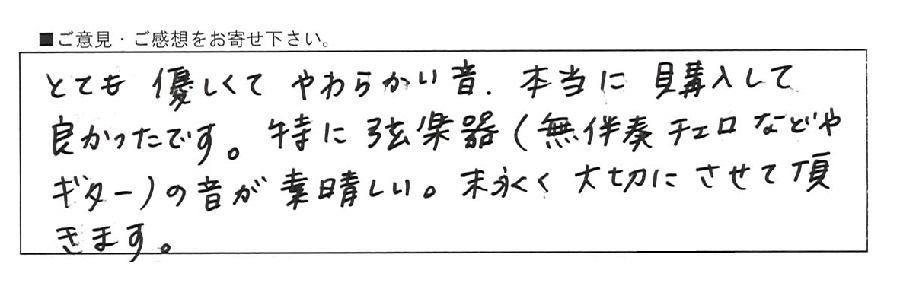 ■ご意見・ご感想をお寄せ下さい。
とても 優しくて やわらかい音. 本当に 購入して
良かったです。特に弦楽器(無伴奏チェロなどや
ギター)の音が 素晴しい。末永く 大切に させて頂
きます。